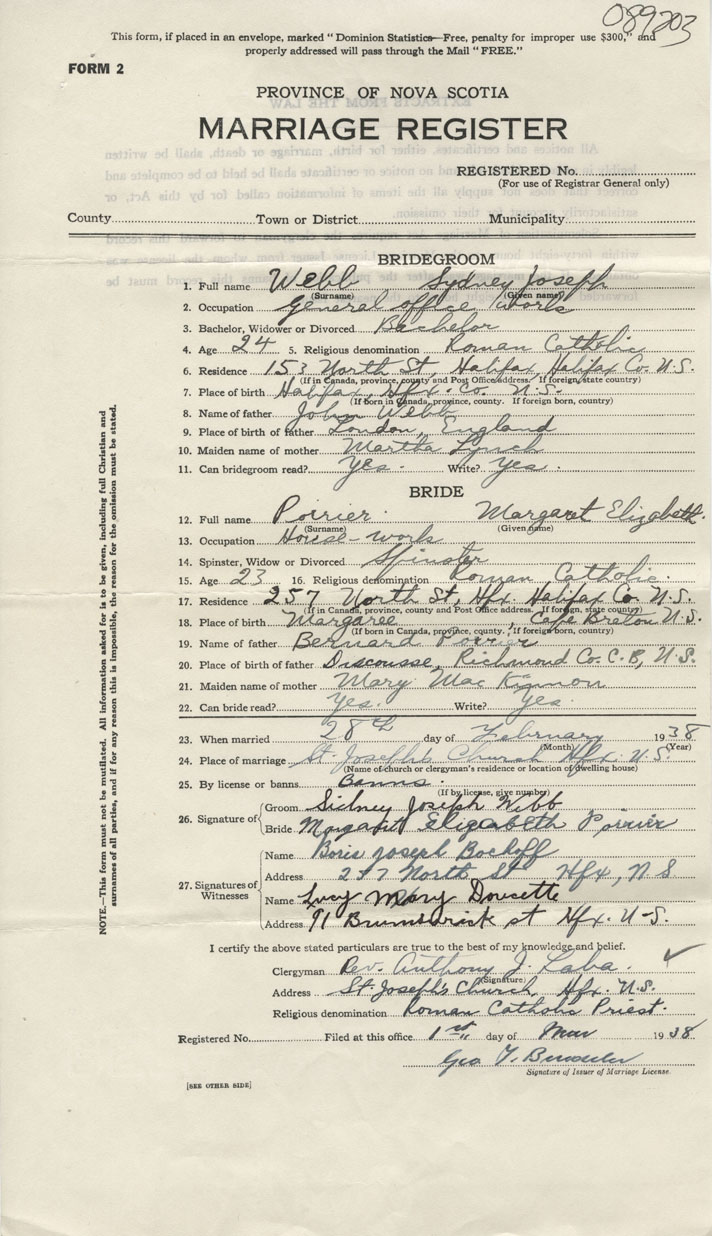 089203
This form, if placed in an envelope, marked "Dominion Statistics—Free, penalty for improper use $300," and
properly addressed will pass through the Mail "FREE."
FORM 2
PROVINCE OF NOVA SCOTIA
MARRIAGE REGISTER
REGISTERED No.
(For use of Registrar General only)
County Town or District Municipality
BRIDEGROOM
1. Full name Webb Sydney Joseph
(Surname) (Given name)
2. Occupation General office works
3. Bachelor, Widower or Divorced Bachelor
4. Age 24 5. Religious denomination Roman Catholic
6. Residence 153 North St, Halifax, Halifax Co. N.S.
(If in Canada, province, county and Post Office address. If foreign, state country)
7. Place of birth Halifax, Hfx. Co. N.S.
(If born in Canada, province, county. If foreign born, country)
8. Name of father John Webb
9. Place of birth of father London, England
10. Maiden name of mother Martha Lynch
11. Can bridegroom read? Yes. Write? Yes.
BRIDE
12. Full name Poirier Margaret Elizabeth.
(Surname) (Given name)
13. Occupation House-work
14. Spinster, Widow or Divorced Spinster
15. Age 23 16. Religious denomination Roman Catholic.
17. Residence 257 North St, Hfx. Halifax Co. N.S.
(If in Canada, province, county and Post Office address. If foreign, state country)
18. Place of birth Margaree, Cape Breton N.S.
(If born in Canada, province, county. If foreign born, country)
19. Name of father Bernard Poirier
20. Place of birth of father Discousse, Richmond Co. C.B, N.S.
21. Maiden name of mother Mary Mac Kinnon
22. Can bride read? Yes. Write? Yes.
23. When married 28th day of February 1938
(Month) (Year)
24. Place of marriage St. Joseph's Church Hfx. N.S.
(Name of church or clergyman's residence or location of dwelling house)
25. By license or banns Banns.
(If by license, give number)
26. Signature of Groom Sidney Joseph Webb
Bride Margaret Elizabeth Poirier
27. Signatures of Witnesses
Name Boris Joseph Bochoff
Address North St Hfx, N S
Name Lucy Mary Doucette
Address 91 Brunswick st Hfx. N-S.
I certify the above stated particulars are true to the best of my knowledge and belief.
Clergyman Rev. Anthony J. Laba.
(Signature)
Address St. Joseph's Church, Hfx. N.S.
Religious denomination Roman Catholic Priest.
Registered No. Filed at this office 1st day of Mar 1938
Geo
Signature of Issuer of Marriage License.
[SEE OTHER SIDE]
NOTE.—This form must not be mutilated. All information asked for is to be given, including full Christian and
surnames of all parties, and if for any reason this is impossible, the reason for the omission must be stated.